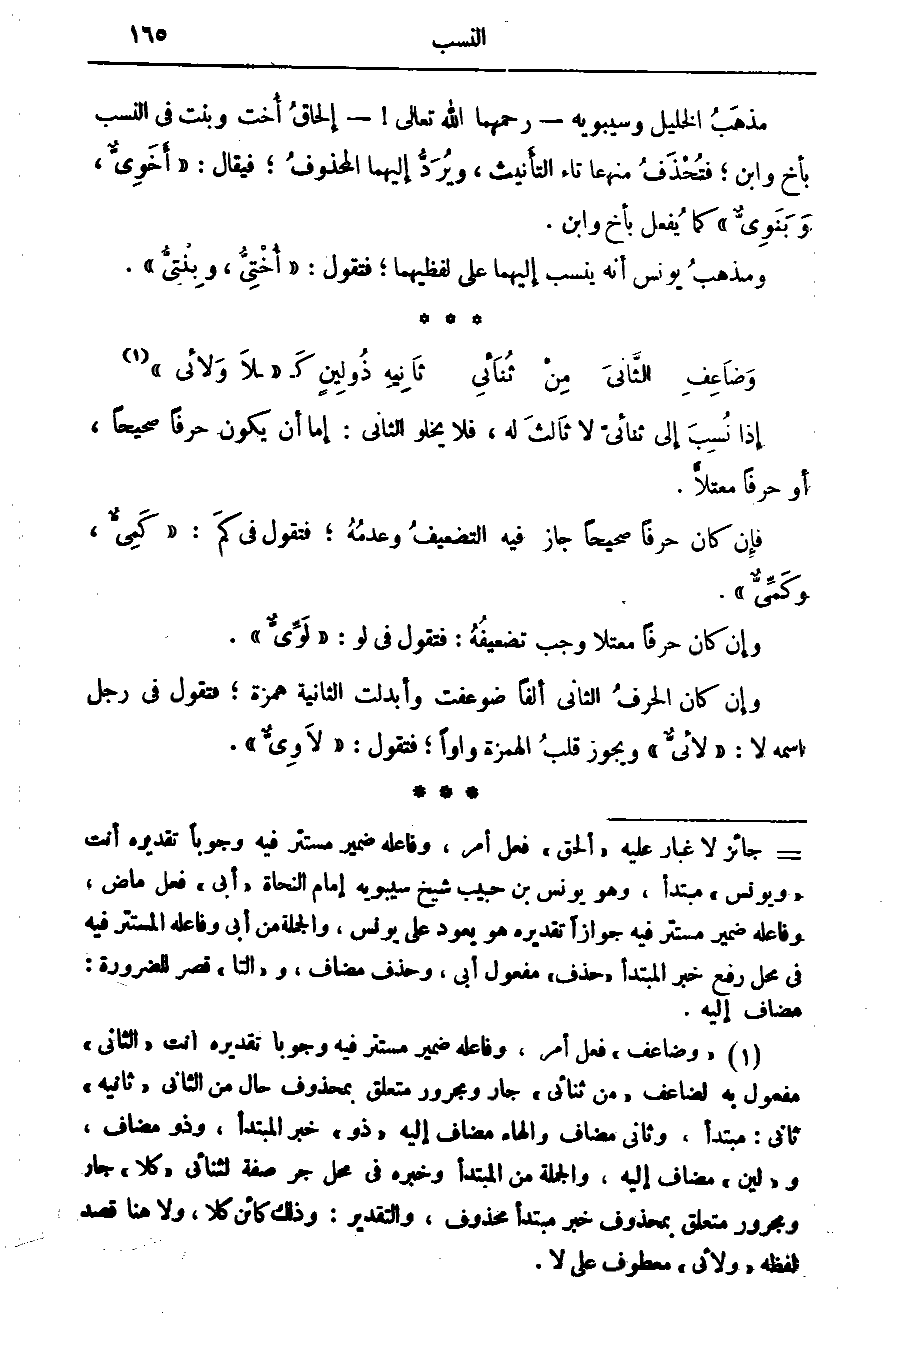 النسب ١٦٥
مذهَبُ الخليل وسيبويه — رحمهما الله تعالى ! — إلحاقُ أُخت وبنت فى النسب
بأخ وابن ؛ فتُحْذَفُ منهما تاء التأنيث ، ويُرَدُّ إليهما المحذوفُ ؛ فيقال : « أَخَوِىٌّ ،
وَبَنَوِىٌّ » كما يُفعل بأخ وابن .
ومذهبُ يونس أنه ينسب إليهما على لفظيهما ؛ فتقول : « أُخْتِىٌّ ، وبِنْتِىٌّ » .
* * *
وَضَاعِفِ الثَّانِىَ مِنْ ثُنَائِى ثَانِيهِ ذُولِينٍ كَـ « لاَ وَلاَئى » (١)
إذا نُسِبَ إلى ثنائىّ لا ثَالثَ له ، فلا يخلو الثانى : إما أن يكون حرفاً صحيحاً ،
أو حرفاً معتلاًّ .
فإن كان حرفاً صحيحاً جاز فيه التضعيفُ وعدمُهُ ؛ فتقول فى كَمَ : « كَمِىٌّ ،
وكَمِّىٌّ » .
وإن كان حرفاً معتلا وجب تضعيفُهُ : فتقول فى لو : « لَوِّىٌّ » .
وإن كان الحرفُ الثانى ألفاً ضوعفت وأبدلت الثانية همزة ؛ فتقول فى رجل
اسمه لا : « لائىٌّ » ويجوز قلبُ الهمزة واواً ؛ فتقول : « لاَوِىٌّ » .
* * *
= جائز لا غبار عليه « ألحق » فعل أمر ، وفاعله ضمير مستتر فيه وجوباً تقديره أنت
« ويونس » مبتدأ ، وهو يونس بن حبيب شيخ سيبويه إمام النحاة « أبى » فعل ماض ،
وفاعله ضمير مستتر فيه جوازاً تقديره هو يعود على يونس ، والجملة من أبى وفاعله المستتر فيه
فى محل رفع خبر المبتدأ «حذف» مفعول أبى ، وحذف مضاف ، و « التا » قصر للضرورة :
مضاف إليه .
(١) « وضاعف » فعل أمر ، وفاعله ضمير مستتر فيه وجوبا تقديره أنت « الثانى »
مفعول به لضاعف « من ثنائى » جار ومجرور متعلق بمحذوف حال من الثانى « ثانيه »
ثانى : مبتدأ ، وثانى مضاف والهاء مضاف إليه « ذو » خبر المبتدأ ، وذو مضاف ،
و « لين » مضاف إليه ، والجملة من المبتدأ وخبره فى محل جر صفة لثنائى « كلا » جار
ومجرور متعلق بمحذوف خبر مبتدأ محذوف ، والتقدير : وذلك كائن كلا ، ولا هنا قصد
لفظه « ولائى » معطوف على لا .